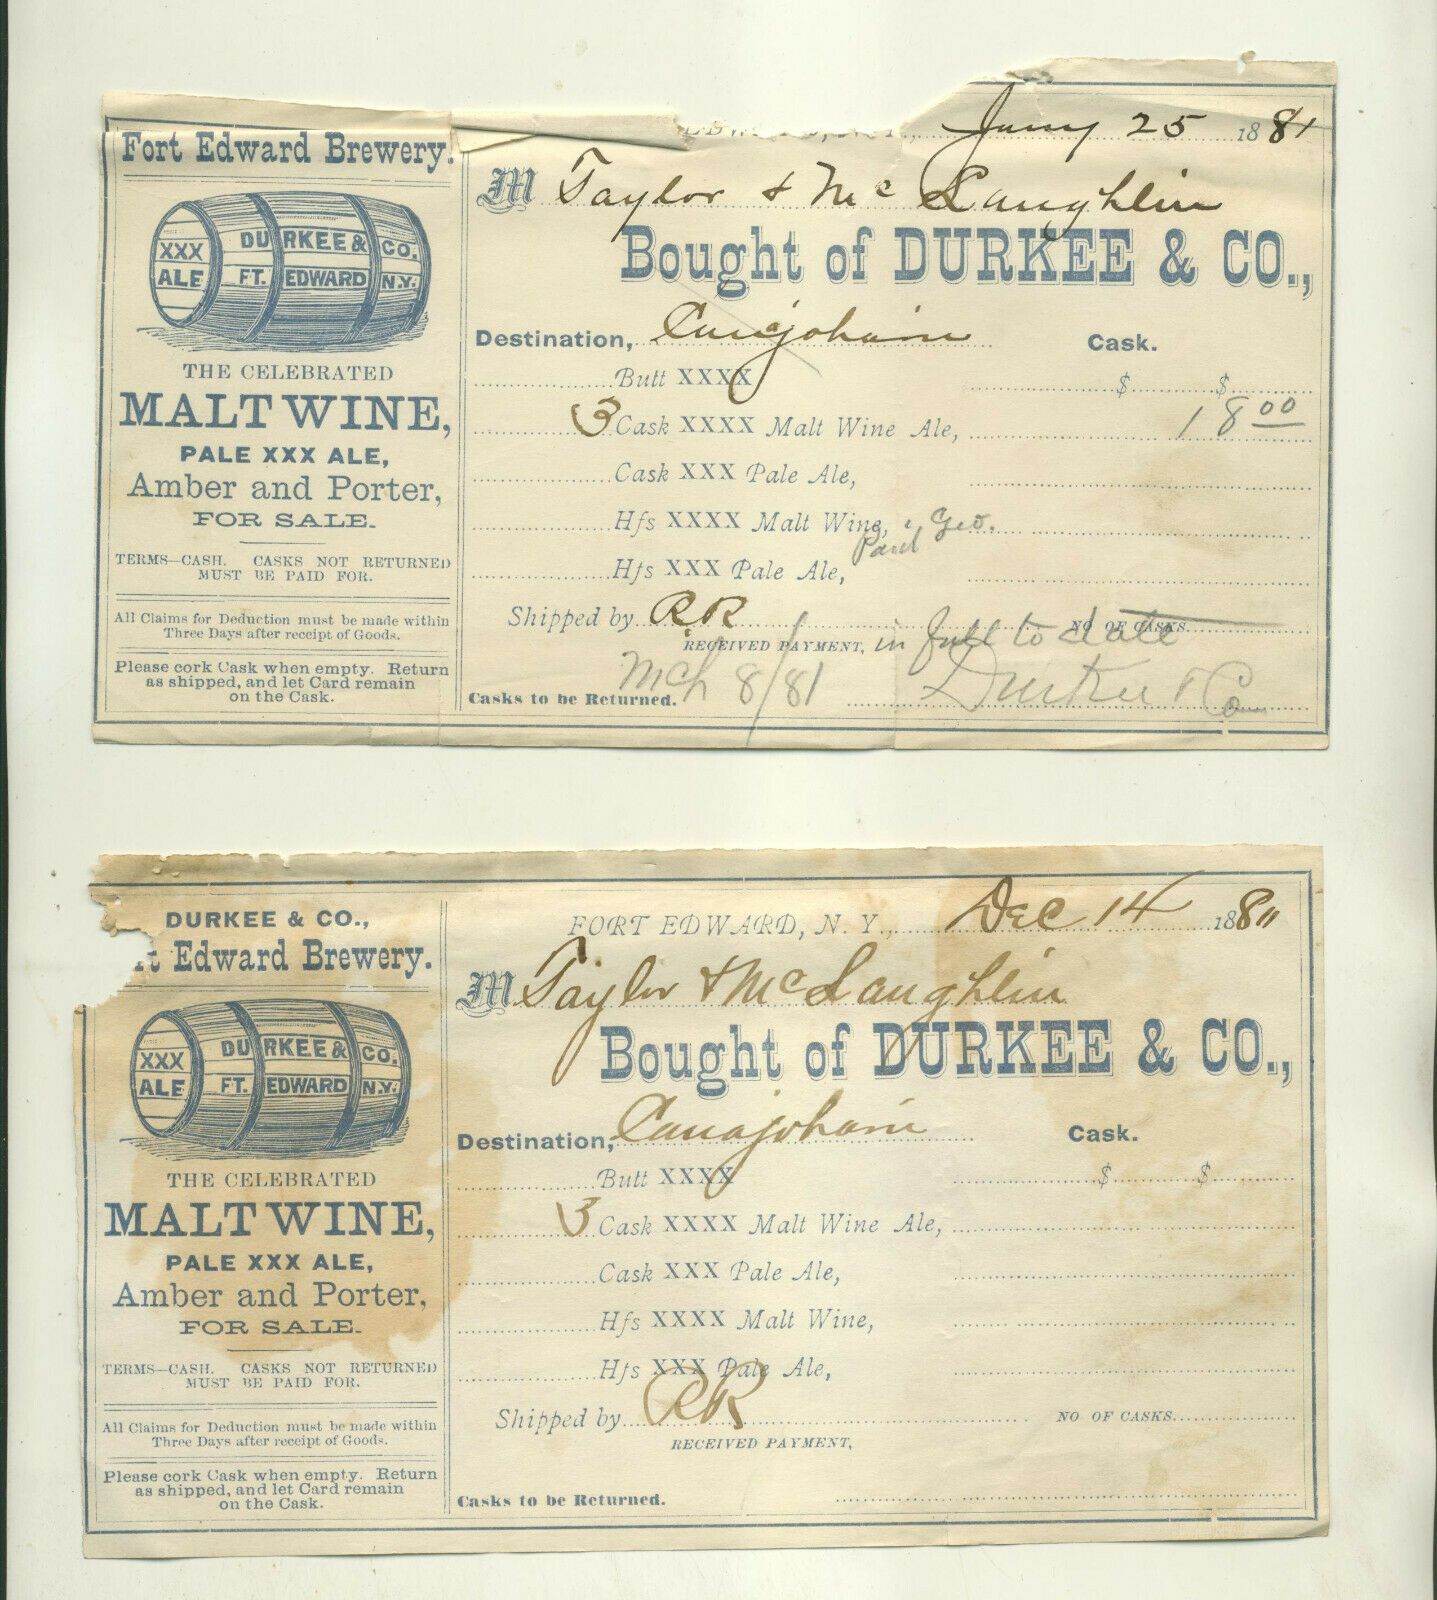 Fort Edward Brewery.
XXX ALE
DURKEE & CO.
FT. EDWARD N.Y.
THE CELEBRATED
MALT WINE,
PALE XXX ALE,
Amber and Porter,
FOR SALE.
TERMS—CASH. CASKS NOT RETURNED
MUST BE PAID FOR.
All Claims for Deduction must be made within
Three Days after receipt of Goods.
Please cork Cask when empty. Return
as shipped, and let Card remain
on the Cask.
25 1881
M Taylor & McLaughlin
Bought of DURKEE & CO.,
Destination, Canajoharie Cask.
Butt XXXX $ $
3 Cask XXXX Malt Wine Ale, 18 00
Cask XXX Pale Ale,
Hfs XXXX Malt Wine, Geo.
Hfs XXX Pale Ale,
Shipped by RR NO OF CASKS
RECEIVED PAYMENT, in full to date
Mch 8/81 Durkee & Co
Casks to be Returned.
DURKEE & CO.,
rt Edward Brewery.
XXX ALE
DURKEE & CO.
FT. EDWARD N.Y.
THE CELEBRATED
MALT WINE,
PALE XXX ALE,
Amber and Porter,
FOR SALE.
TERMS—CASH. CASKS NOT RETURNED
MUST BE PAID FOR.
All Claims for Deduction must be made within
Three Days after receipt of Goods.
Please cork Cask when empty. Return
as shipped, and let Card remain
on the Cask.
FORT EDWARD, N. Y., Dec 14 1880
M Taylor & McLaughlin
Bought of DURKEE & CO.,
Destination, Canajoharie Cask.
Butt XXXX $ $
3 Cask XXXX Malt Wine Ale,
Cask XXX Pale Ale,
Hfs XXXX Malt Wine,
Hfs XXX Pale Ale,
Shipped by RR NO OF CASKS
RECEIVED PAYMENT,
Casks to be Returned.